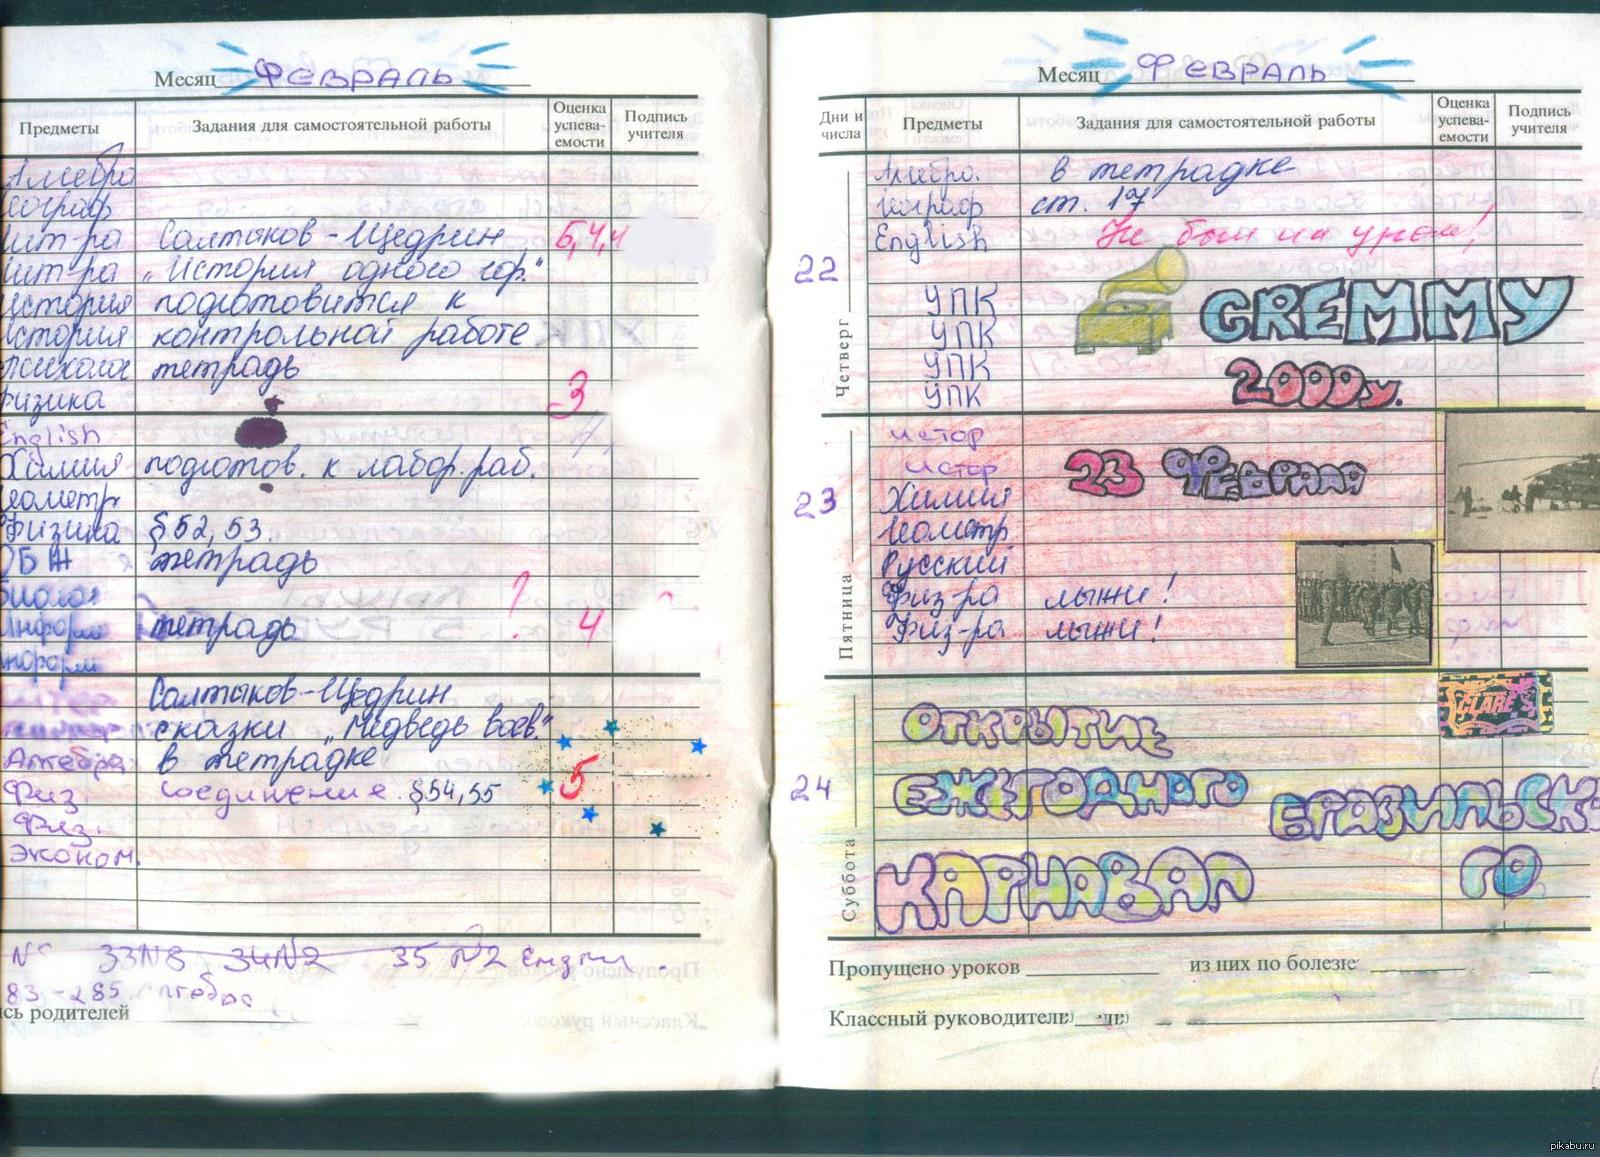 Месяц Февраль
Предметы Задания для самостоятельной работы Оценка успева-емости Подпись учителя
Алгебра
Географ
Лит-ра Салтыков-Щедрин 5,4,4
Лит-ра „История одного гор."
История подготовится к
История контрольной работе
Психолог тетрадь
Физика 3
English
Химия подготов. к лабор. раб.
Геометр
Физика §52,53.
ОБЖ тетрадь
Биолог ?
Информ тетрадь 4
Информ
Салтыков-Щедрин
сказки „Медведь воев."
Алгебра в тетрадке
Физ соединение §54,55 5
Физ.
Эконом.
33N8 34N2 35 N2
83-285 алгебра
сь родителей
Месяц Февраль
Дни и числа Предметы Задания для самостоятельной работы Оценка успева-емости Подпись учителя
22 Четверг
Алгебра. в тетрадке
Географ ст. 17
English Не был на уроке!
УПК
УПК
УПК
УПК
GREMMY
2000y.
23 Пятница
Истор
Истор
23 Февраля
Химия
Геометр
Русский
Физ-ра лыжи!
Физ-ра лыжи!
24 Суббота
CLARE
Открытие
Ежегодного Бразильск-
Карнавал го
Пропущено уроков из них по болезне
Классный руководитель
pikabu.ru